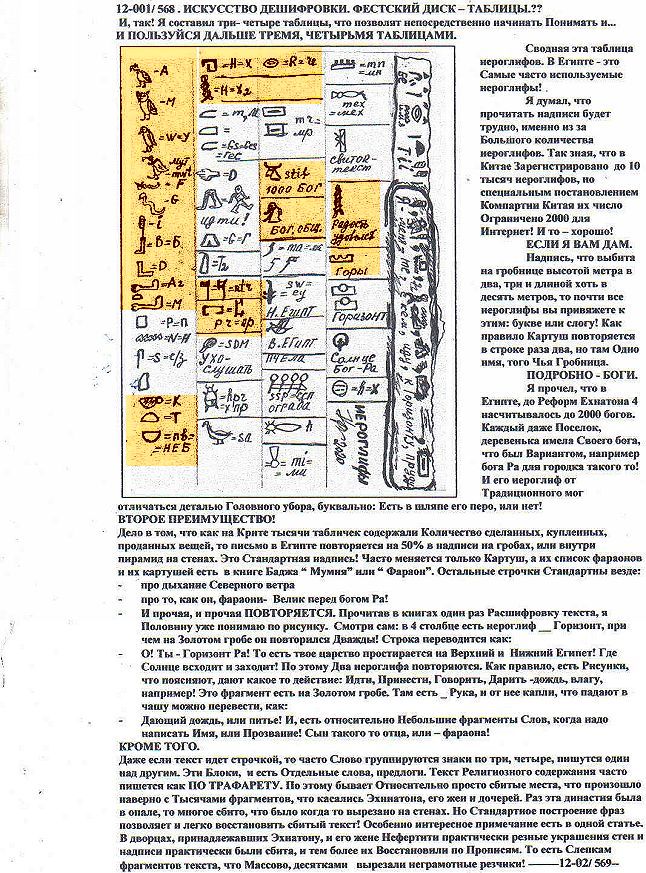 12-001/ 568 . ИСКУССТВО ДЕШИФРОВКИ. ФЕСТСКИЙ ДИСК – ТАБЛИЦЫ.??
И, так! Я составил три- четыре таблицы, что позволят непосредственно начинать Понимать и...
И ПОЛЬЗУЙСЯ ДАЛЬШЕ ТРЕМЯ, ЧЕТЫРЬМЯ ТАБЛИЦАМИ.
Сводная эта таблица
иероглифов. В Египте - это
Самые часто используемые
иероглифы! .
Я думал, что
прочитать надписи будет
трудно, именно из за
Большого количества
иероглифов. Так зная, что в
Китае Зарегистрировано до 10
тысяч иероглифов, но
специальным постановлением
Компартии Китая их число
Ограничено 2000 для
Интернет! И то – хорошо!
ЕСЛИ Я ВАМ ДАМ.
Надпись, что выбита
на гробнице высотой метра в
два, три и длиной хоть в
десять метров, то почти все
иероглифы вы привяжете к
этим: букве или слогу! Как
правило Картуш повторяется
в строке раза два, но там Одно
имя, того Чья Гробница.
ПОДРОБНО - БОГИ.
Я прочел, что в
Египте, до Реформ Ехнатона 4
насчитывалось до 2000 богов.
Каждый даже Поселок,
деревенька имела Своего бога,
что был Вариантом, например
бога Ра для городка такого то!
И его иероглиф от
Традиционного мог
-А
-М
=W=У
Мут
=F
-G
-i
=B=Б
=D
=М
=P=П
=N=Н
=S=с/з
=K
=T
=НЕБ
=H=X
=R=
идти!
=G=Г
=SDM
УХО-
СЛУШАТЬ
=sa
stif
1000 БОГ
БОГ, ОБЩ.
Н. ЕГИПТ
В. ЕГИПТ
ПЧЕЛА
ОГРАДА
=mi=
СВИТОК-
ТЕКСТ
Радость
ГОРЫ
ГОРИЗОНТ
Солнце
Бог-Ра
ИЕРОГЛИФЫ
отличаться деталью Головного убора, буквально: Есть в шляпе его перо, или нет!
ВТОРОЕ ПРЕИМУЩЕСТВО!
Дело в том, что как на Крите тысячи табличек содержали Количество сделанных, купленных,
проданных вещей, то письмо в Египте повторяется на 50% в надписи на гробах, или внутри
пирамид на стенах. Это Стандартная надпись! Часто меняется только Картуш, а их список фараонов
и их картушей есть в книге Баджа “ Мумия” или “ Фараон”. Остальные строчки Стандартны везде:
- про дыхание Северного ветра
- про то, как он, фараони- Велик перед богом Ра!
- И прочая, и прочая ПОВТОРЯЕТСЯ. Прочитав в книгах один раз Расшифровку текста, я
Половину уже понимаю по рисунку. Смотри сам: в 4 столбце есть иероглиф __ Горизонт, при
чем на Золотом гробе он повторился Дважды! Строка переводится как:
- О! Ты - Горизонт Ра! То есть твое царство простирается на Верхний и Нижний Египет! Где
Солнце всходит и заходит! По этому Два иероглифа повторяются. Как правило, есть Рисунки,
что поясняют, дают какое то действие: Идти, Принести, Говорить, Дарить -дождь, влагу,
например! Это фрагмент есть на Золотом гробе. Там есть _ Рука, и от нее капли, что падают в
чашу можно перевести, как:
- Дающий дождь, или питье! И, есть относительно Небольшие фрагменты Слов, когда надо
написать Имя, или Прозвание! Сын такого то отца, или – фараона!
КРОМЕ ТОГО.
Даже если текст идет строчкой, то часто Слово группируются знаки по три, четыре, пишутся один
над другим. Эти Блоки, и есть Отдельные слова, предлоги. Текст Религиозного содержания часто
пишется как ПО ТРАФАРЕТУ. По этому бывает Относительно просто сбитые места, что произошло
наверно с Тысячами фрагментов, что касались Эхинатона, его жен и дочерей. Раз эта династия была
в опале, то многое сбито, что было когда то вырезано на стенах. Но Стандартное построение фраз
позволяет и легко восстановить сбитый текст! Особенно интересное примечание есть в одной статье.
В дворцах, принадлежавших Эхнатону, и его жене Нефертити практически резные украшения стен и
надписи практически были сбита, и тем более их Восстановили по Прописям. То есть Слепкам
фрагментов текста, что Массово, десятками вырезали неграмотные резчики! ——–12-02/ 569--